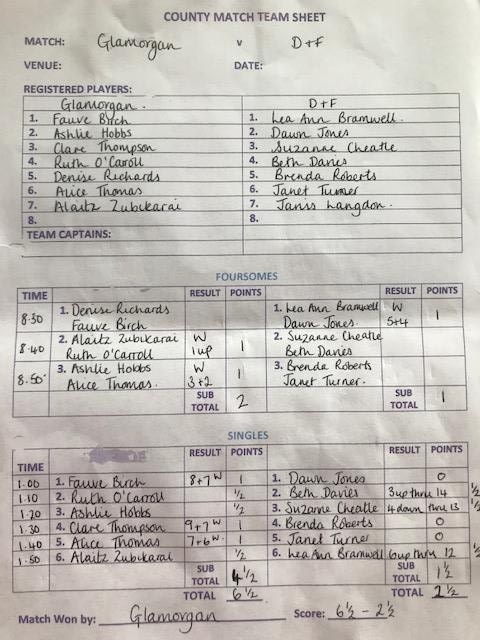 COUNTY MATCH TEAM SHEET
MATCH: Glamorgan v D+F
VENUE: DATE:
REGISTERED PLAYERS:
Glamorgan. D+F
1. Fauve Birch 1. Lea Ann Bramwell.
2. Ashlie Hobbs 2. Dawn Jones
3. Clare Thompson 3. Suzanne Cheatle
4. Ruth O'Caroll 4. Beth Davies
5. Denise Richards 5. Brenda Roberts
6. Alice Thomas 6. Janet Turner
7. Alaitz Zubikarai 7. Janis Langdon.
8. 8.
TEAM CAPTAINS:
FOURSOMES
TIME RESULT POINTS RESULT POINTS
8.30 1. Denise Richards 1. Lea Ann Bramwell W 1
Fauve Birch Dawn Jones 5+4
8.40 2. Alaitz Zubikarai W 1 2. Suzanne Cheatle
Ruth O'Carroll 1up Beth Davies
8.50 3. Ashlie Hobbs W 1 3. Brenda Roberts
Alice Thomas. 3+2 Janet Turner.
SUB TOTAL 2 SUB TOTAL 1
SINGLES
TIME RESULT POINTS RESULT POINTS
1.00 1. Fauve Birch 8+7 W 1 1. Dawn Jones 0
1.10 2. Ruth O'Carroll ½ 2. Beth Davies 3up thru 14 ½
1.20 3. Ashlie Hobbs ½ 3. Suzanne Cheatle 4down thru 13 ½
1.30 4. Clare Thompson 9+7 W 1 4. Brenda Roberts 0
1.40 5. Alice Thomas 7+6 W. 1 5. Janet Turner 0
1.50 6. Alaitz Zubikarai ½ 6. Lea Ann Bramwell 6up thru 12 ½
SUB TOTAL 4½ SUB TOTAL 1½
TOTAL 6½ TOTAL 2½
Match Won by: Glamorgan Score: 6½ - 2½